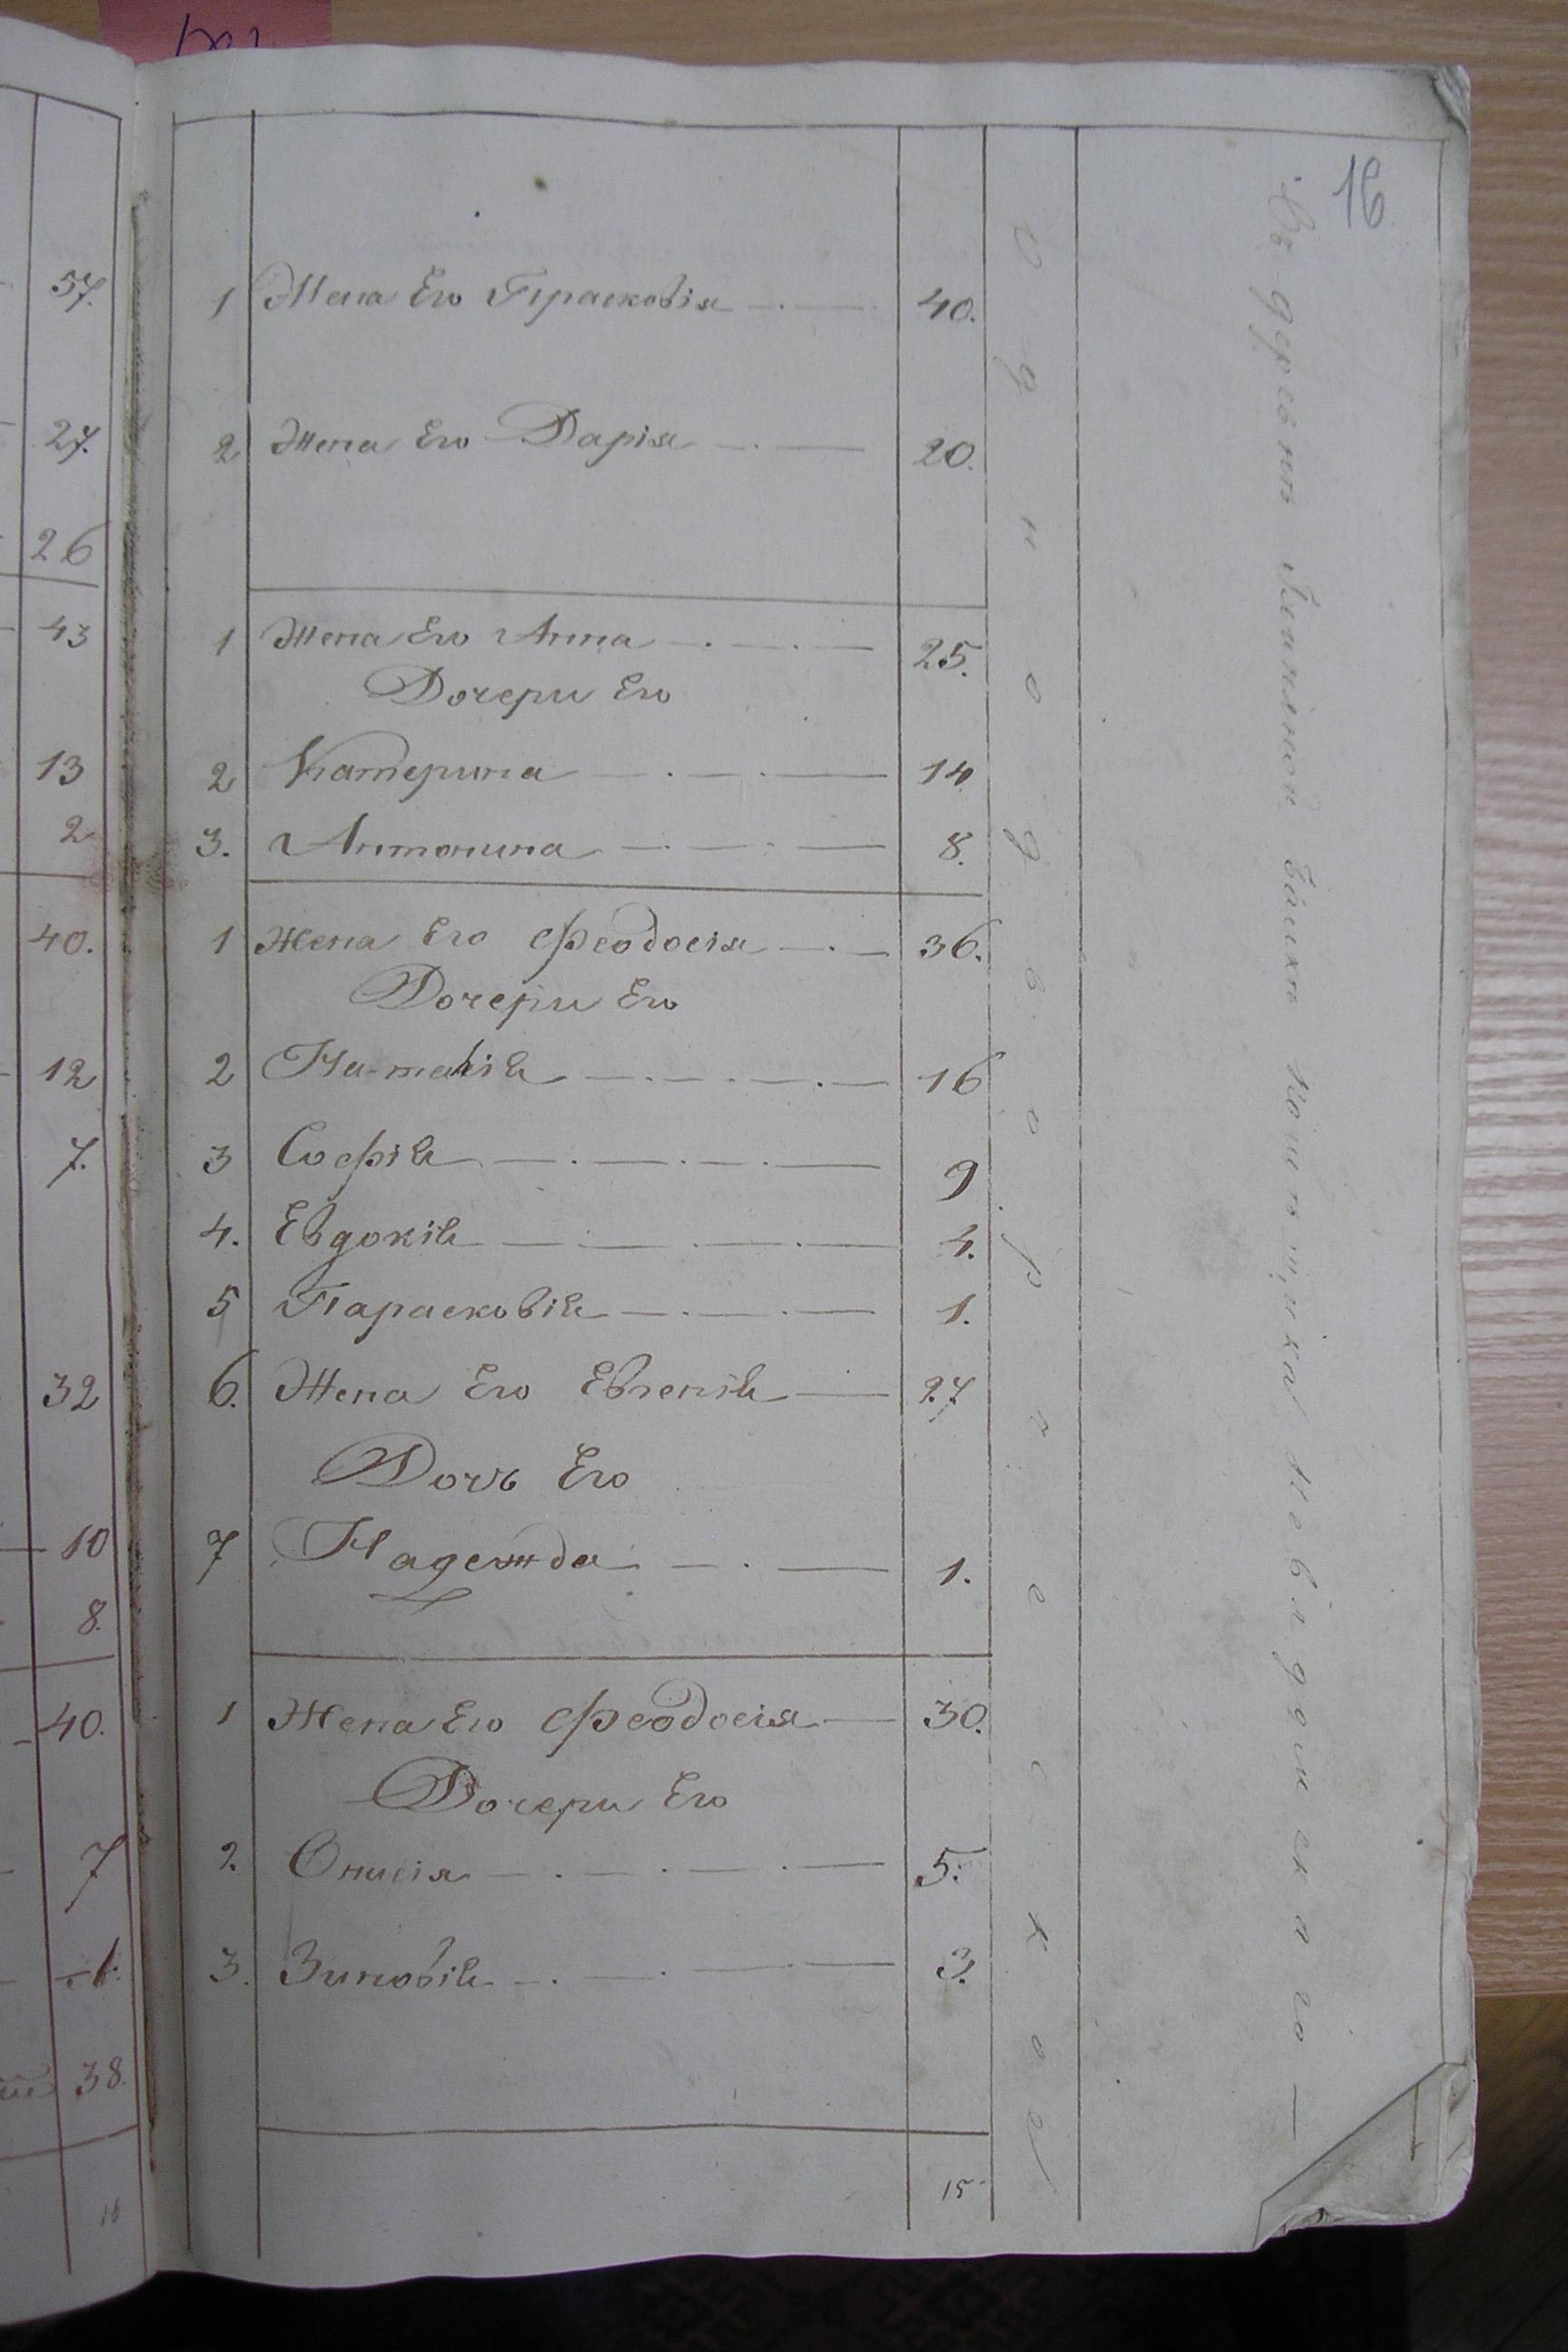 16
1 Жена Его Прасковія 40.
2 Жена Его Дарія 20.
1 Жена Его Анна 25.
Дочери Его
2 Катерина 14
3. Антонина 8.
1 Жена Его Феодосія 36.
Дочери Его
2 Наталія 16
3 Софія 9
4. Евдокія 4.
5 Парасковія 1.
6. Жена Его Евгенія 27
Дочь Его
7 Надежда 1.
1 Жена Его Феодосія 30.
Дочери Его
2. Онисія 5.
3. Зиновія 3.
15
Однодворческое
Въ деревнѣ помѣщика
57.
27.
26
43
13
2
40.
12
7.
32
10
8.
40.
7
38.
16